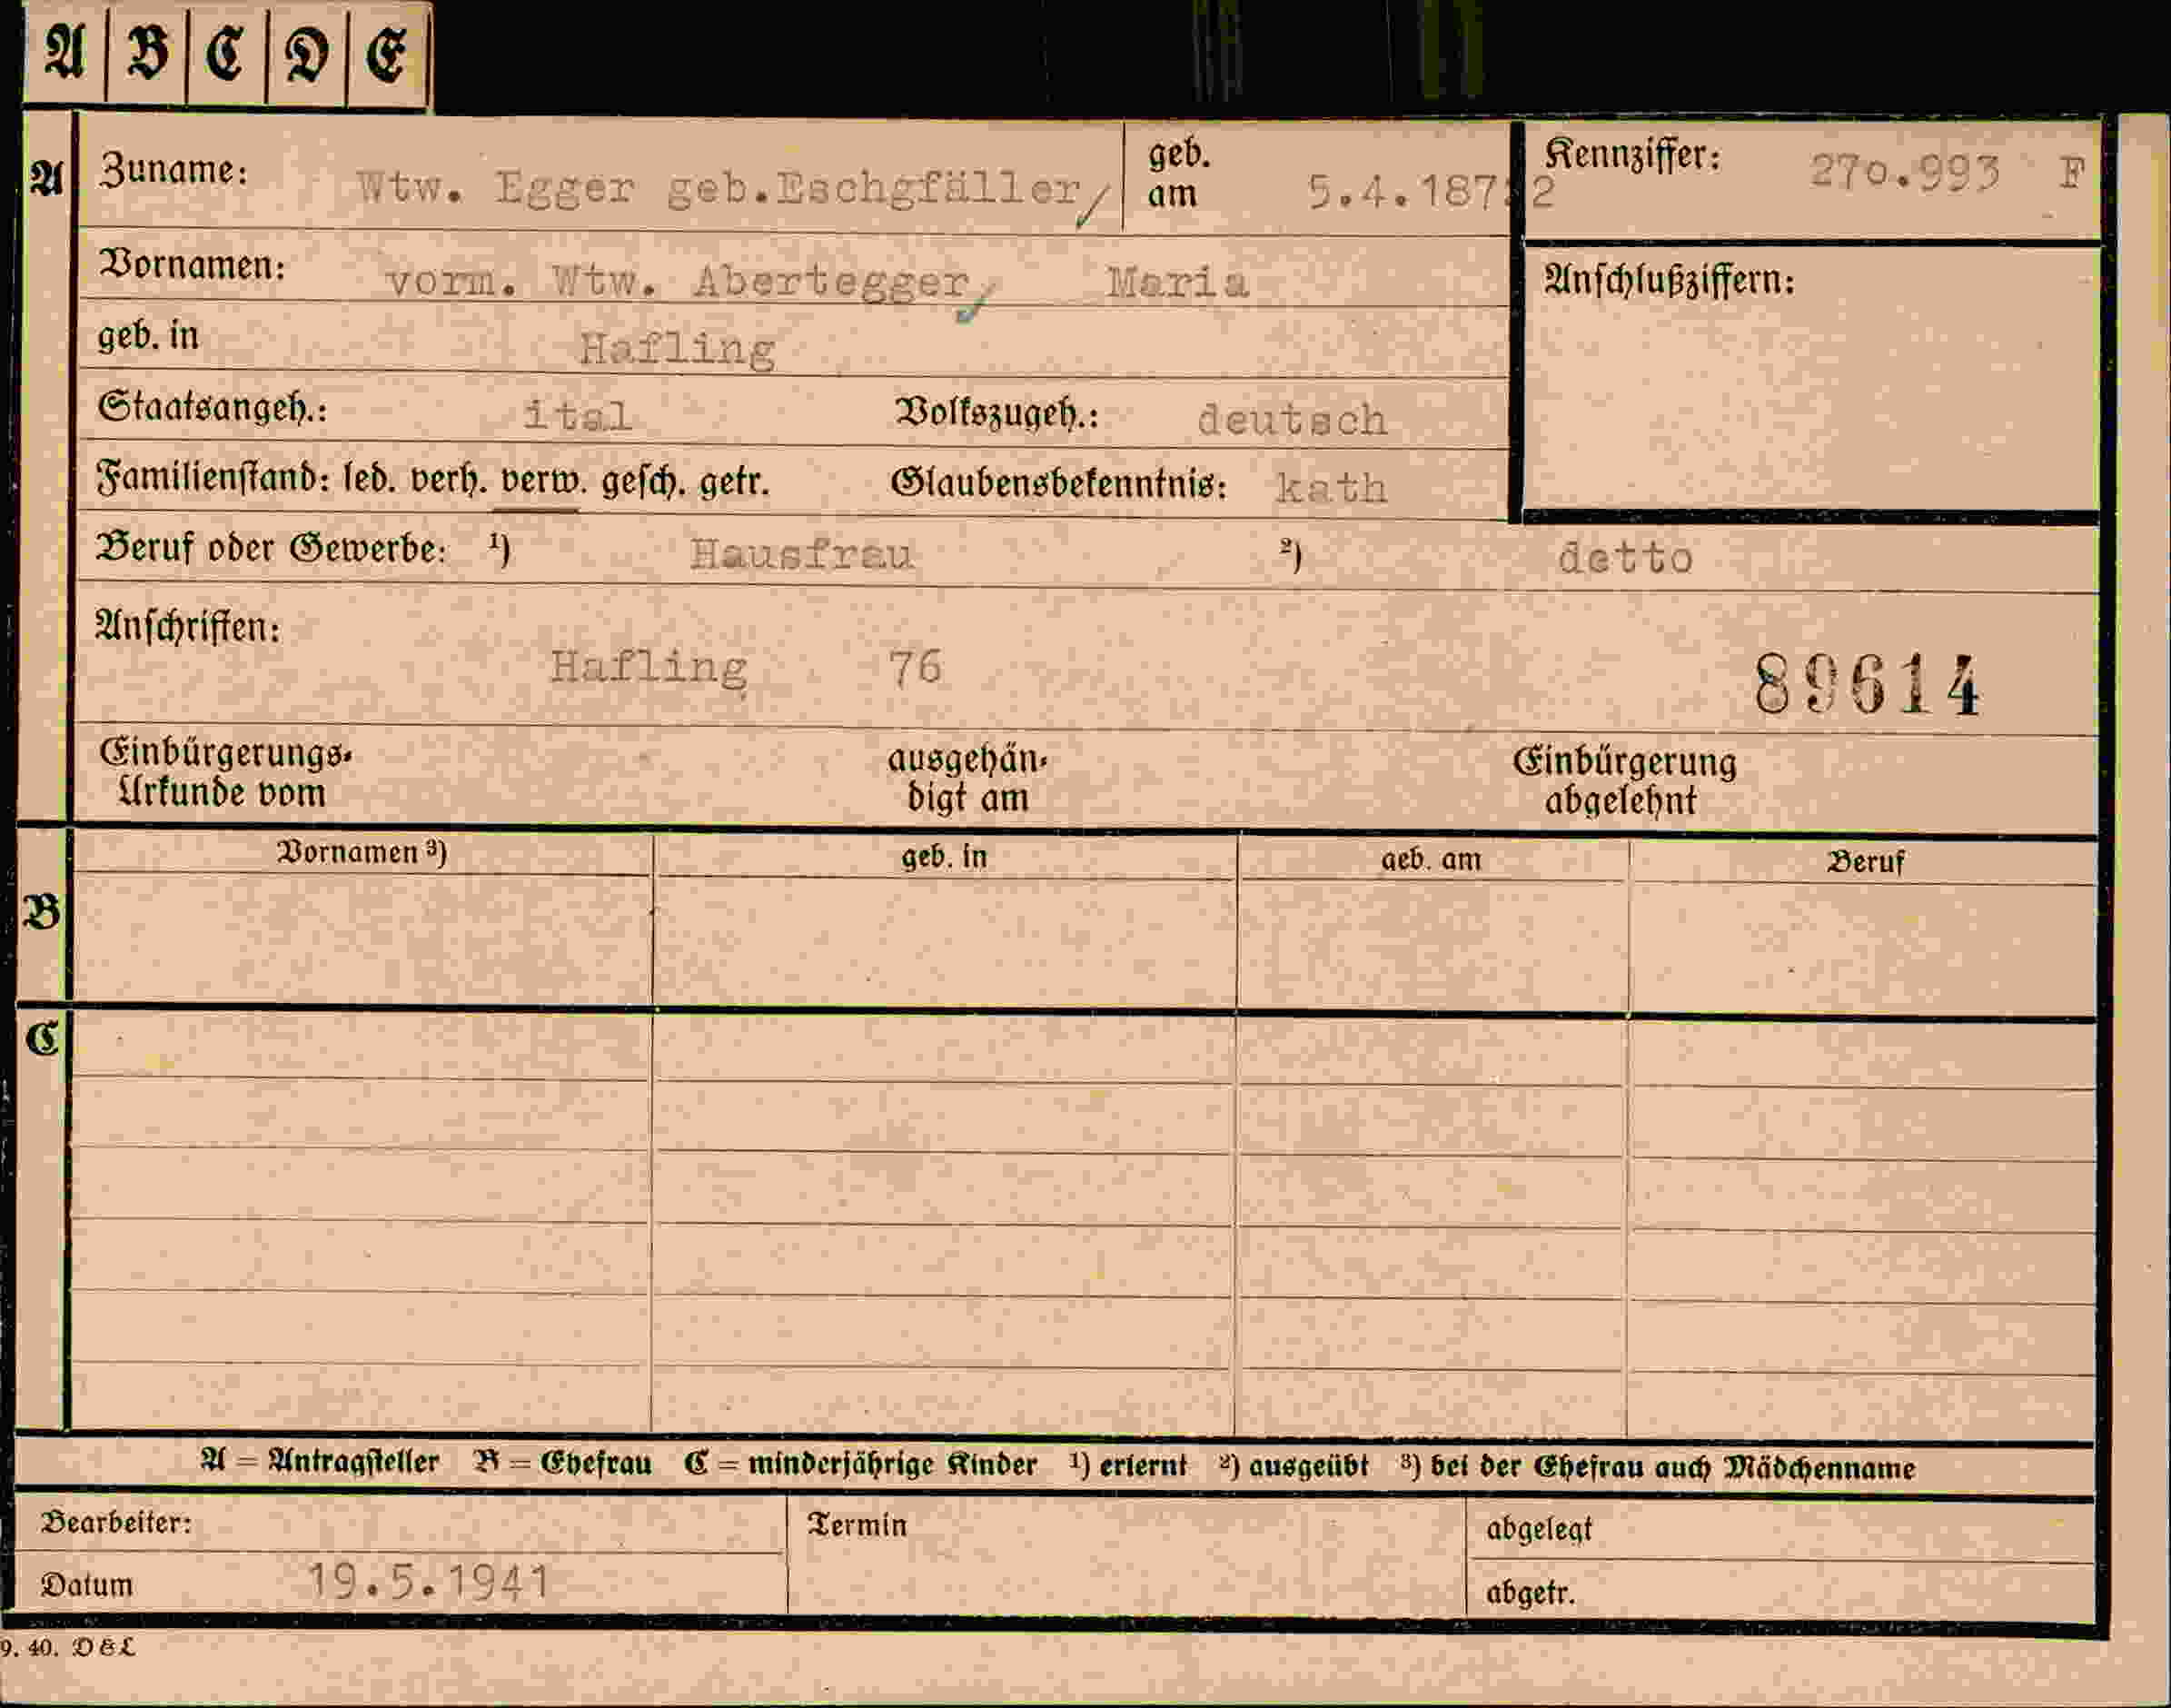 A B C D E
A Zuname: Wtw. Egger geb.Eschgfäller, geb. am 5.4.1872 Kennziffer: 270.993 F
Vornamen: vorm. Wtw. Abertegger, Maria Anschlußziffern:
geb. in Hafling
Staatsangeh.: ital Volkszugeh.: deutsch
Familienstand: led. verh. verw. gesch. getr. Glaubensbekenntnis: kath
Beruf oder Gewerbe: ¹) Hausfrau ²) detto
Anschriften:
Hafling 76 89614
Einbürgerungs- ausgehän- Einbürgerung
Urkunde vom digt am abgelehnt
Vornamen ³) geb. in geb. am Beruf
B
C
A = Antragsteller B = Ehefrau C = minderjährige Kinder ¹) erlernt ²) ausgeübt ³) bei der Ehefrau auch Mädchenname
Bearbeiter: Termin abgelegt
Datum 19.5.1941 abgetr.
9. 40. D & L